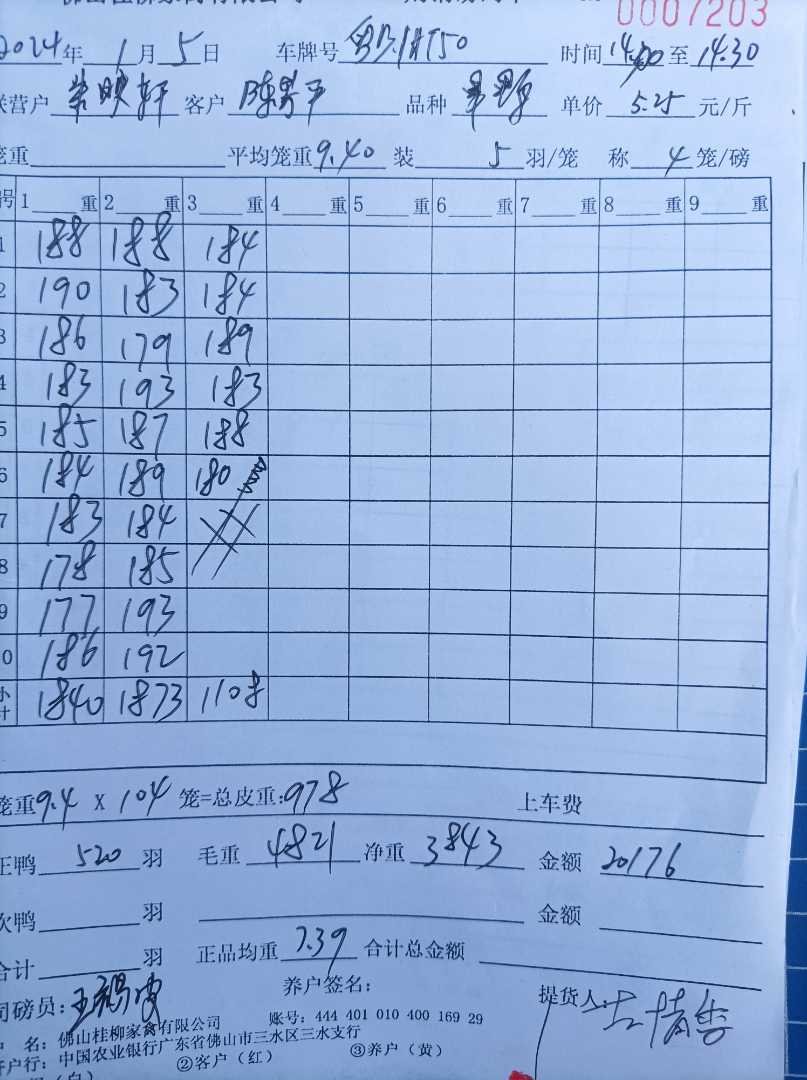 0007203
2024年 1月 5日 车牌号 时间 14.00 至 14.30
联营户 客户 品种 单价 5.25 元/斤
笼重 平均笼重 9.40 装 5 羽/笼 称 4 笼/磅
号 1 重 2 重 3 重 4 重 5 重 6 重 7 重 8 重 9 重
1 188 188 184
2 190 183 184
3 186 179 189
4 183 193 183
5 185 187 188
6 184 189 180
7 183 184
8 178 185
9 177 193
0 186 192
小计 1840 1873 1108
笼重 9.4 X 104 笼=总皮重: 978 上车费
正鸭 520 羽 毛重 4821 净重 3843 金额 20176
次鸭 羽 金额
合计 羽 正品均重 7.39 合计总金额
司磅员: 养户签名: 提货人:
户 名: 佛山桂柳家禽有限公司 账号: 444 401 010 400 169 29
开户行: 中国农业银行广东省佛山市三水区三水支行
②客户(红) ③养户(黄)